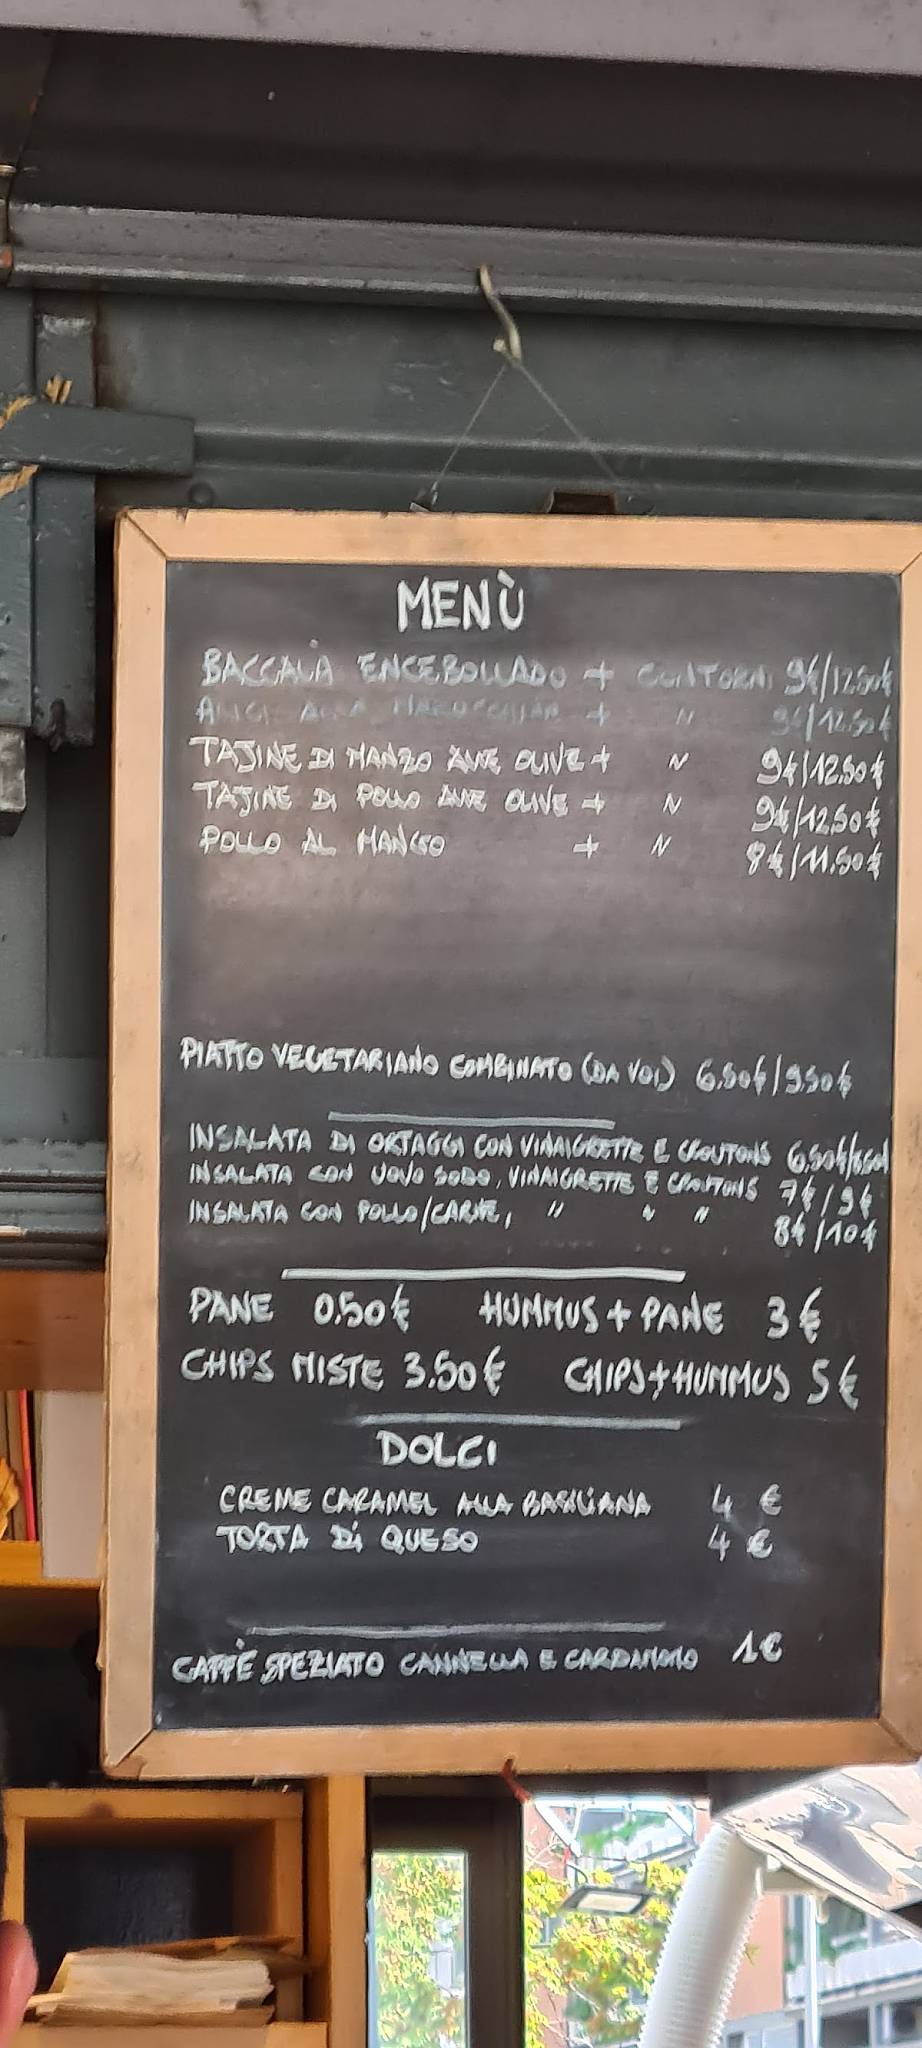 MENÙ
BACCALÀ ENCEBOLLADO + CONTORNI 9€/12.50€
ALICI ALLA + " 9€/12.50€
TAJINE DI MANZO ALLE OLIVE + " 9€/12.50€
TAJINE DI POLLO ALLE OLIVE + " 9€/12.50€
POLLO AL MANGO + " 8€/11.50€
PIATTO VEGETARIANO COMBINATO (DA VOI) 6.50€/9.50€
INSALATA DI ORTAGGI CON VINAIGRETTE E CROUTONS 6.50€/8.50€
INSALATA CON UOVO SODO, VINAIGRETTE E CROUTONS 7€/9€
INSALATA CON POLLO/CARNE, " " " 8€/10€
PANE 0.50€ HUMMUS + PANE 3€
CHIPS MISTE 3.50€ CHIPS+HUMMUS 5€
DOLCI
CREME CARAMEL ALLA BASILIANA 4 €
TORTA DI QUESO 4 €
CAFFÈ SPEZIATO CANNELLA E CARDAMOMO 1€